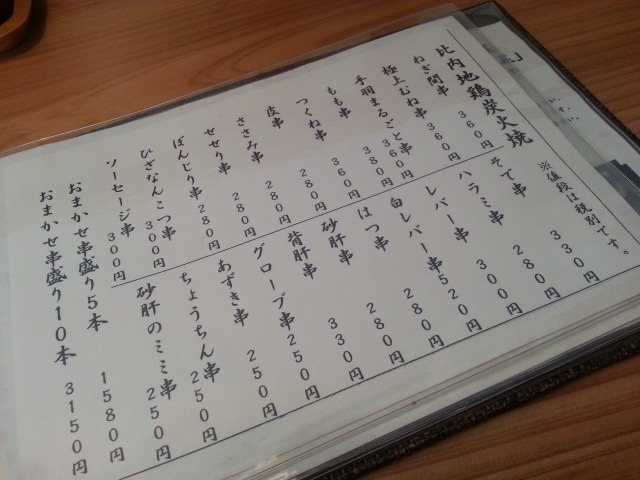 比内地鶏炭火焼
※値段は税別です。
ねぎ間串 360円
極上むね串 360円
手羽まるごと串 360円
もも串 380円
つくね串 360円
皮串 280円
ささみ串 280円
せせり串 280円
ぼんじり串 280円
ひざなんこつ串 300円
ソーセージ串 300円
そて串 330円
ハラミ串 280円
レバー串 300円
白レバー串 520円
はつ串 280円
砂肝串 280円
背肝串 330円
グローブ串 250円
あずき串 250円
ちょうちん串 250円
砂肝のミミ串 250円
おまかせ串盛り5本 1580円
おまかせ串盛り10本 3150円